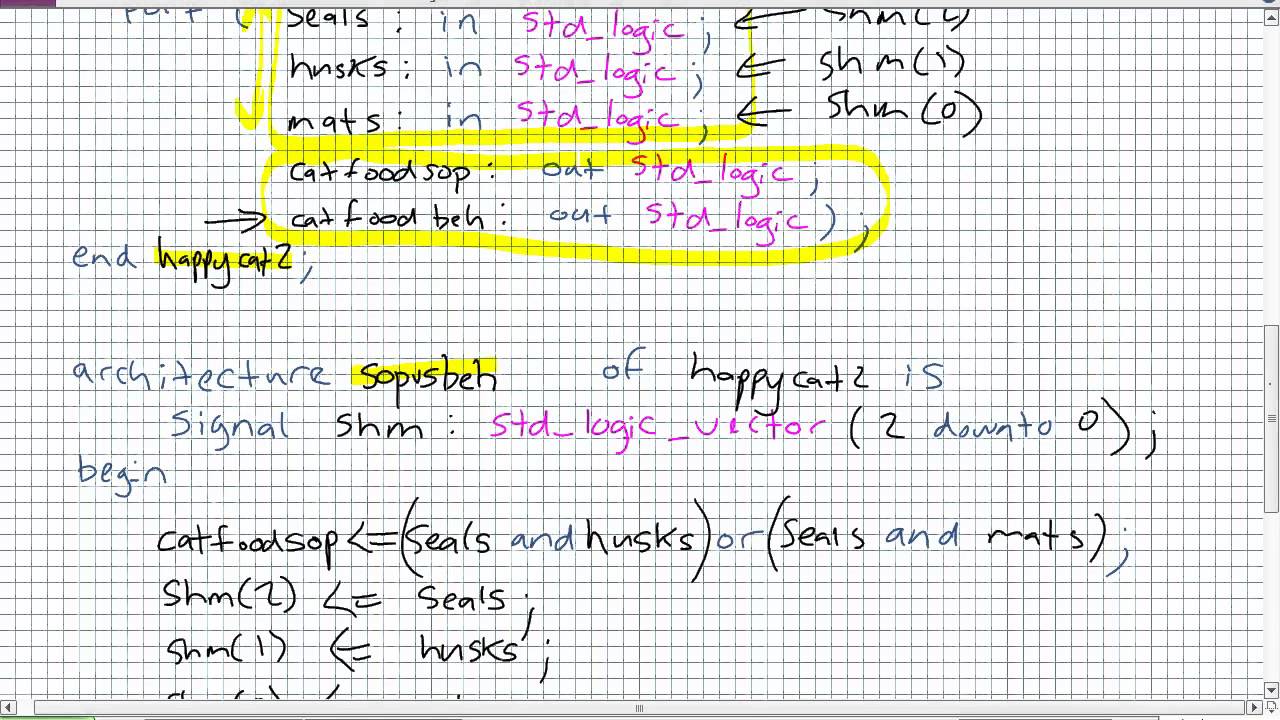 port ( seals : in std_logic ; ← shm(2)
husks : in std_logic ; ← shm(1)
mats : in std_logic ; ← shm(0)
catfoodsop : out std_logic ;
→ catfoodbeh : out std_logic ) ;
end happycat2 ;
architecture sopvsbeh of happycat2 is
signal shm : std_logic_vector (2 downto 0) ;
begin
catfoodsop <= (seals and husks) or (seals and mats) ;
shm(2) <= seals ;
shm(1) <= husks ;